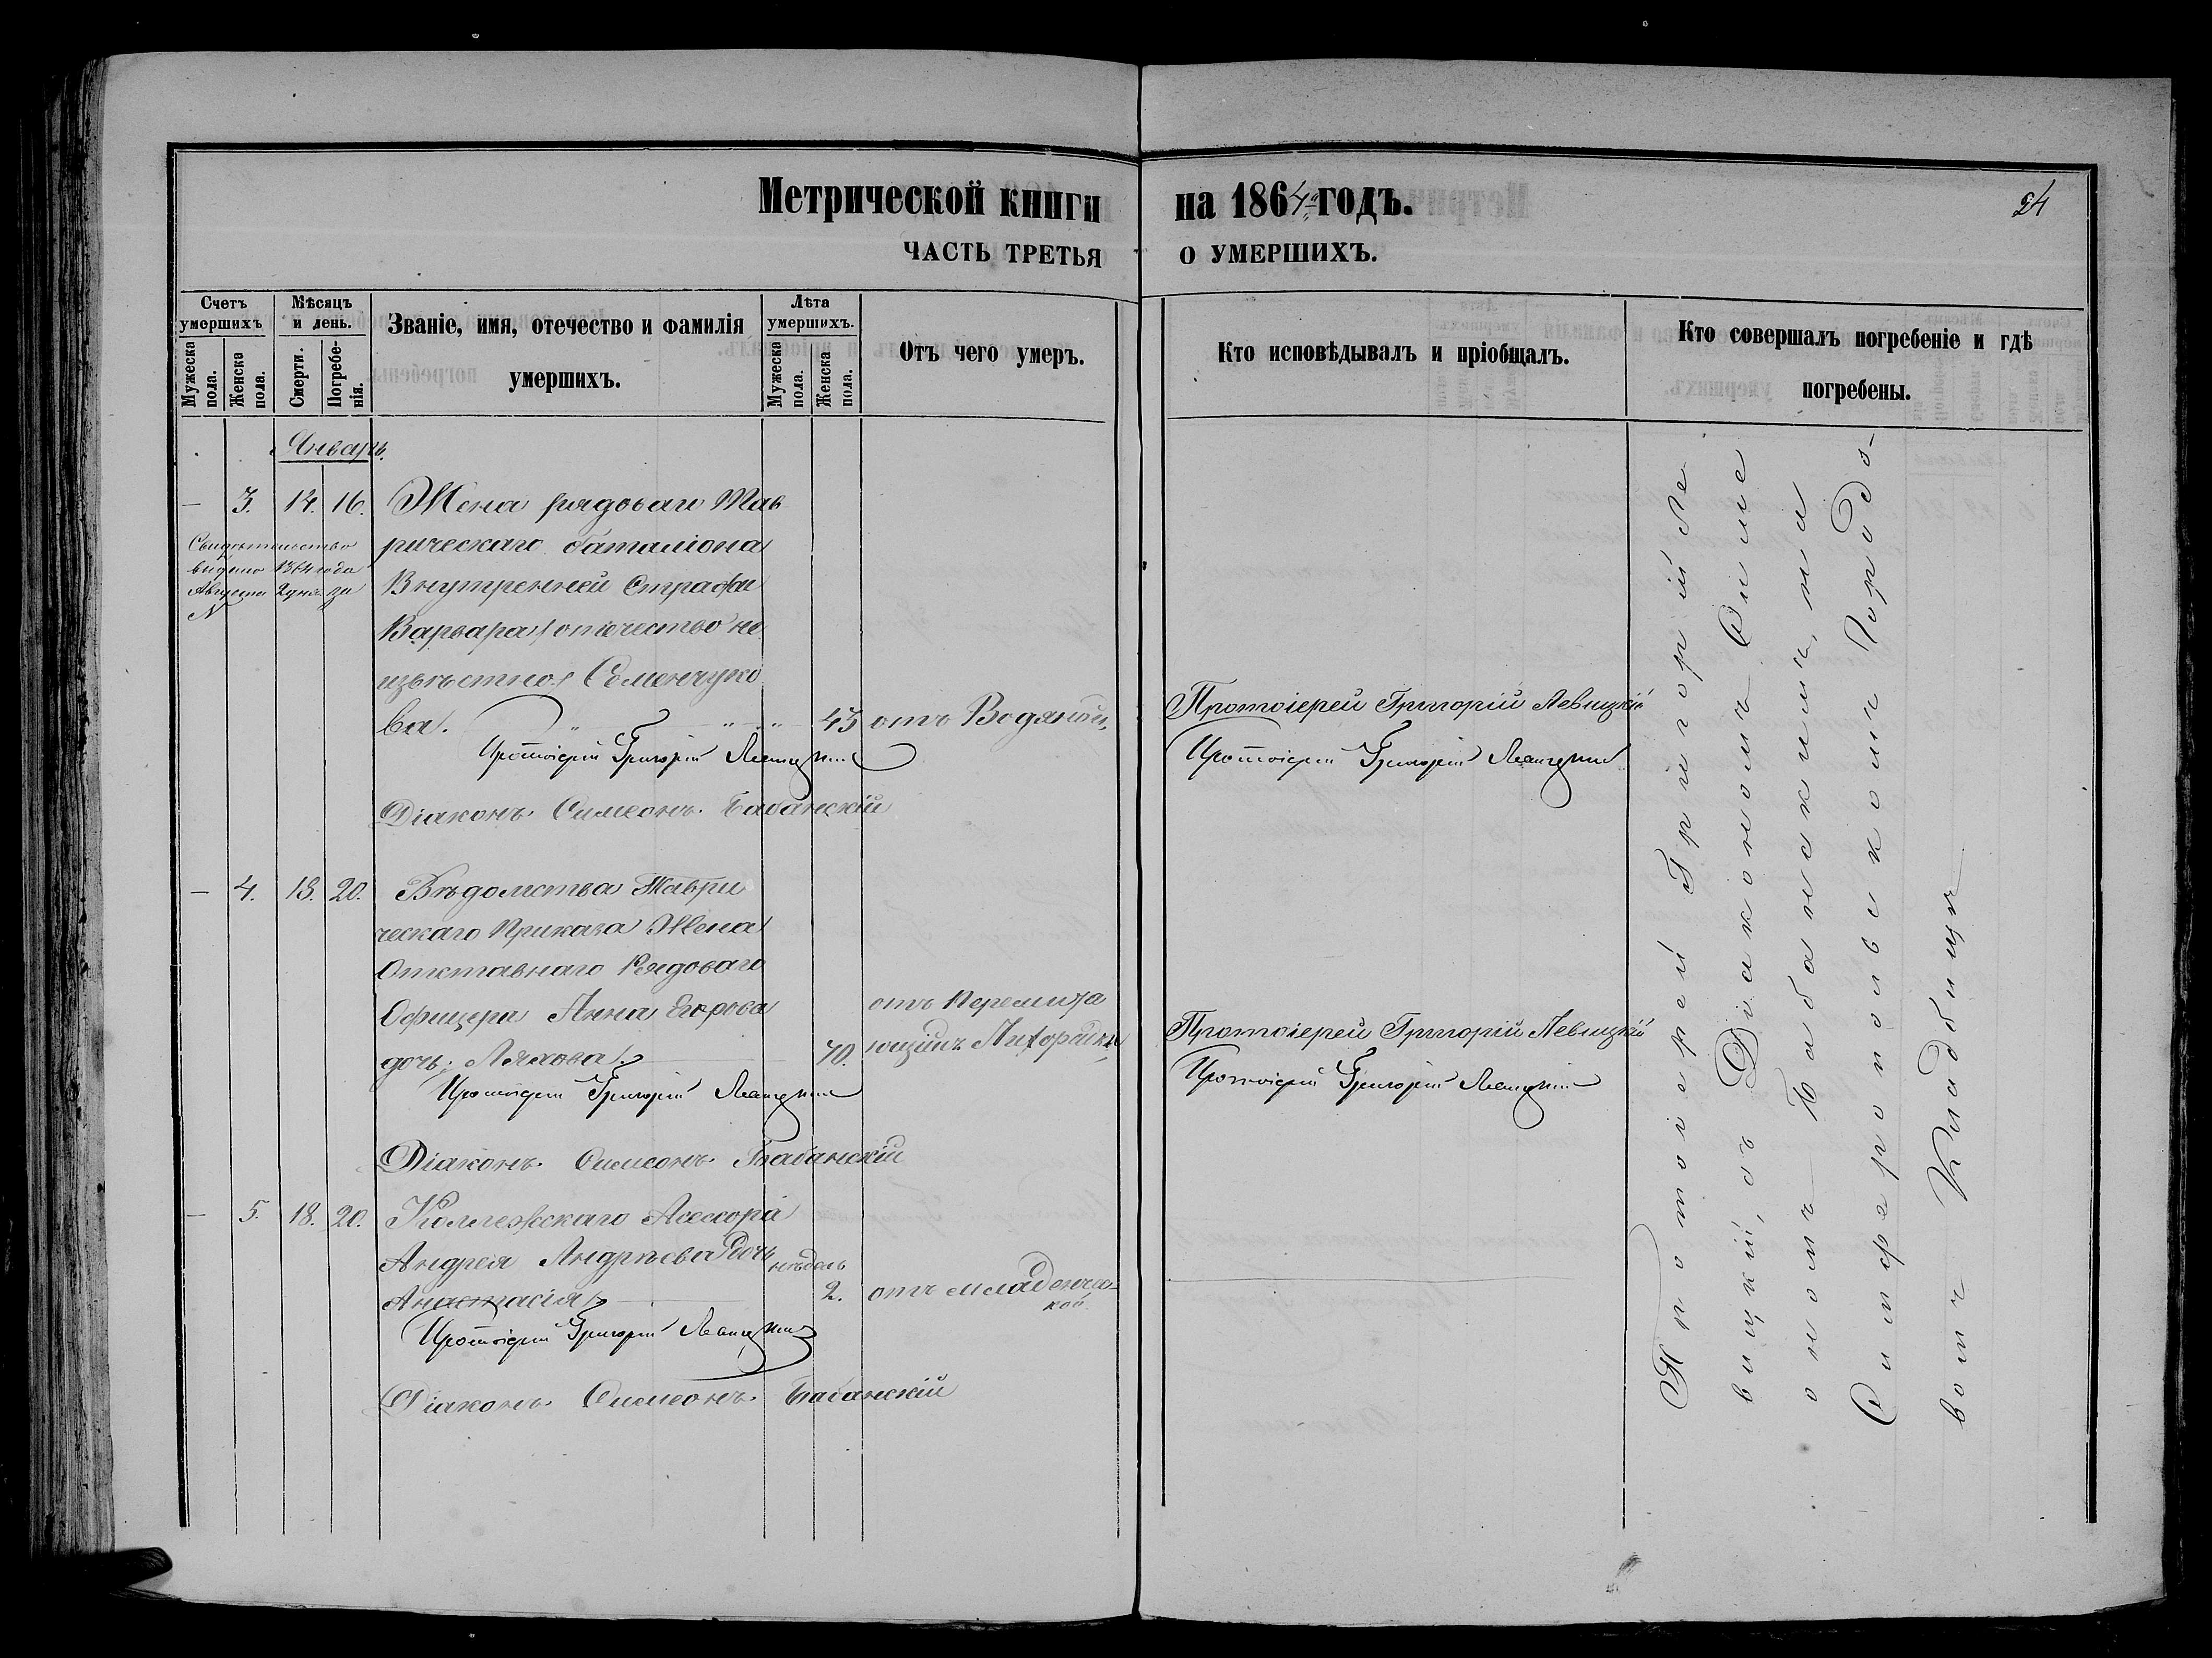 Метрической книги на 1864й годъ.
24
ЧАСТЬ ТРЕТЬЯ О УМЕРШИХЪ.
Счетъ умершихъ
Мужеска пола.
Женска пола.
Мѣсяцъ и день.
Смерти.
Погребенія.
Званіе, имя, отечество и фамилія умершихъ.
Лѣта умершихъ.
Мужеска пола.
Женска пола.
Отъ чего умеръ.
Кто исповѣдывалъ и пріобщалъ.
Кто совершалъ погребеніе и гдѣ погребены.
Январь.
— 3. 14. 16. Жена рядоваго Тав
рическаго баталіона
Внутренней Стражи
Варвара (отечество не
извѣстно) Семенчуко
ва. 43 отъ Водяной.
Свидѣтельство
выдано 1864 года
Августа 2 дня за
N
Протоіерей Григорій Левицкій
Діаконъ Симеонъ Бабанскій
Протоіерей Григорій Левицкій
Протоіерей Григорій Левицкій
— 4. 18. 20. Вѣдомства Таври
ческаго Приказа Жена
Отставнаго Рядоваго
Офицера Анна Егорова
дочь Ляхова. 70.
отъ Перемежа
ющихъ Лихорадки
Протоіерей Григорій Левицкій
Діаконъ Симеонъ Бабанскій
Протоіерей Григорій Левицкій
Протоіерей Григорій Левицкій
— 5. 18. 20. Коллежскаго Асессора
Андрея Андрѣева дочь
Анастасія
недѣль
2. отъ младенчес-
кой
Протоіерей Григорій Левицкій
Діаконъ Симеонъ Бабанскій
Протоіерей Григорій Ле
вицкій, съ Діакономъ Симе
ономъ Бабанскимъ, на
Симферопольскомъ Городо-
вомъ Кладбищѣ